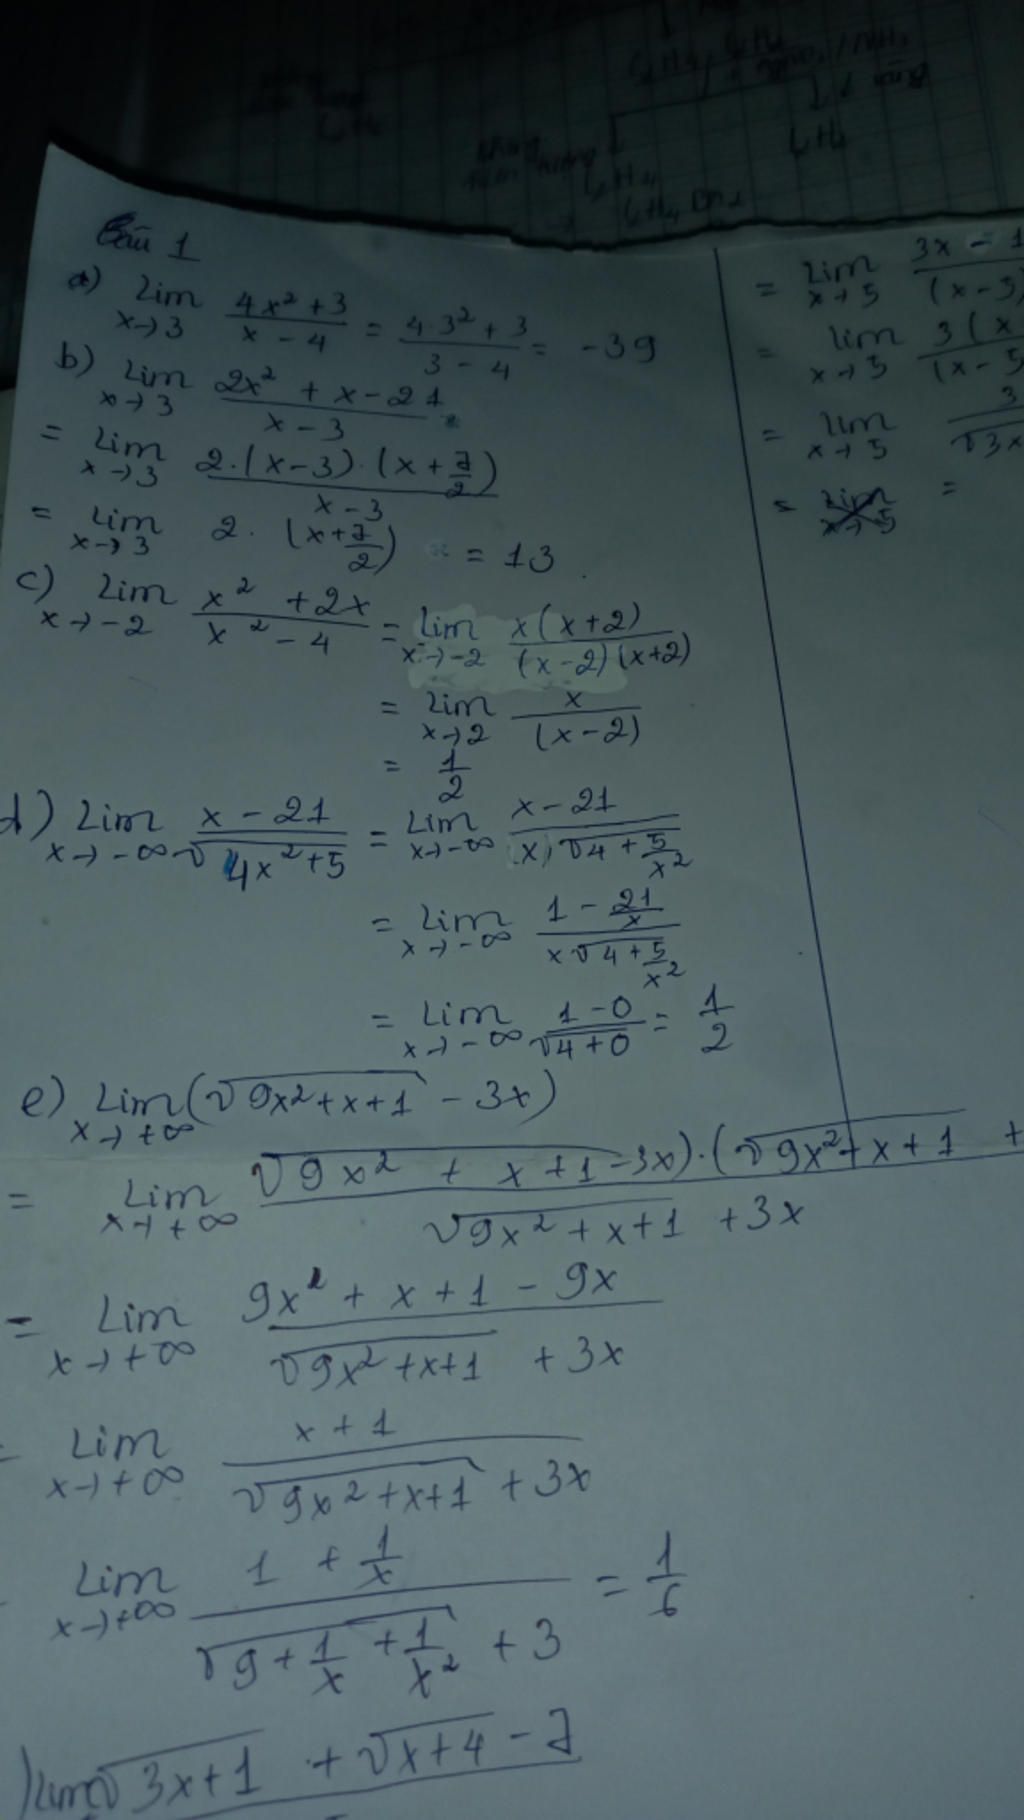 Câu 1
a) Lim x→3 (4x² + 3)/(x - 4) = (4.3² + 3)/(3 - 4) = -39
b) Lim x→3 (2x² + x - 21)/(x - 3)
= Lim x→3 (2.(x-3).(x + 7/2))/(x - 3)
= Lim x→3 2.(x + 7/2) = 13
c) Lim x→-2 (x² + 2x)/(x² - 4) = Lim x→-2 (x(x+2))/((x-2)(x+2))
= Lim x→2 x/(x-2)
= 1/2
d) Lim x→-∞ (x - 21)/√(4x² + 5) = Lim x→-∞ (x - 21)/(|x|√(4 + 5/x²))
= Lim x→-∞ (1 - 21/x)/(x√(4 + 5/x²))
= Lim x→-∞ (1 - 0)/√(4 + 0) = 1/2
e) Lim x→+∞ (√(9x² + x + 1) - 3x)
= Lim x→+∞ (√(9x² + x + 1) - 3x).(√(9x² + x + 1) +
√(9x² + x + 1) + 3x
= Lim x→+∞ (9x² + x + 1 - 9x)/(√(9x² + x + 1) + 3x)
= Lim x→+∞ (x + 1)/(√(9x² + x + 1) + 3x)
Lim x→+∞ (1 + 1/x)/(√(9 + 1/x + 1/x²) + 3) = 1/6
) Lim √(3x + 1) + √(x + 4) - 7
= Lim x→5 3x - 1
(x - 5)
= Lim x→5 3(x
(x - 5
= Lim x→5 3
√3x
= Lim x→5 =